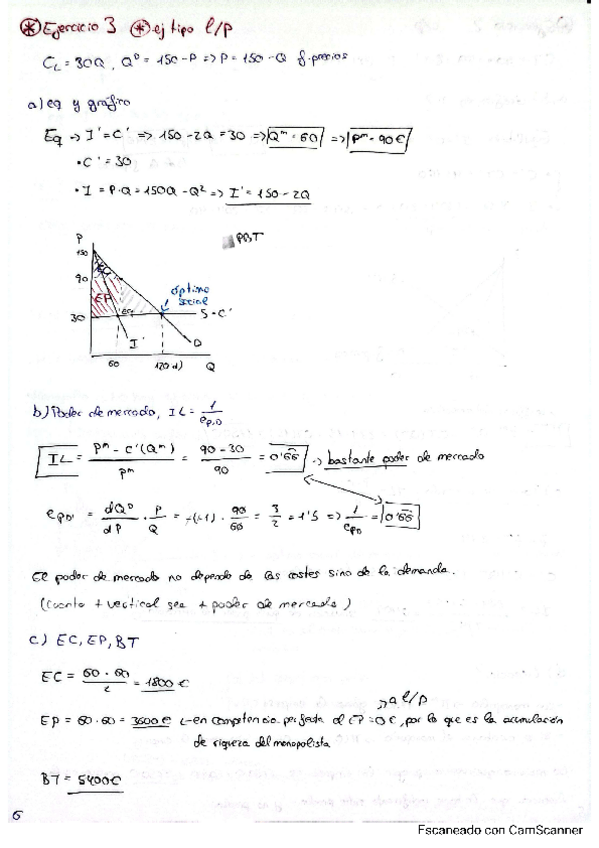 * Ejercicio 3 * ej tipo l/p
CL = 30Q, Q^D = 150 - P => P = 150 - Q f. precios
a) eq y gráfico
Eq → I' = C' => 150 - 2Q = 30 => Q^m = 60 => P^m = 90€
• C' = 30
• I = P·Q = 150Q - Q² => I' = 150 - 2Q
P
PBT
150
90
EC
EP
óptimo
social
30
eq
S = C'
I'
D
60
120
Q
b) Poder de mercado, IL = 1/e_P,D
IL = (P^m - C'(Q^m))/P^m = (90 - 30)/90 = 0'66 → bastante poder de mercado
e_PD = dQ^D/dP · P/Q = -(-1) · 90/60 = 3/2 = 1'5 => 1/e_PD = 0'66
El poder de mercado no depende de los costes sino de la demanda.
(Cuanto + vertical sea + poder de mercado)
c) EC, EP, BT
EC = (60 · 60)/2 = 1800€
→ a l/p
EP = 60·60 = 3600€ ← en competencia perfecta el EP = 0€, por lo que es la acumulación
de riqueza del monopolista
BT = 5400€
6
Escaneado con CamScanner